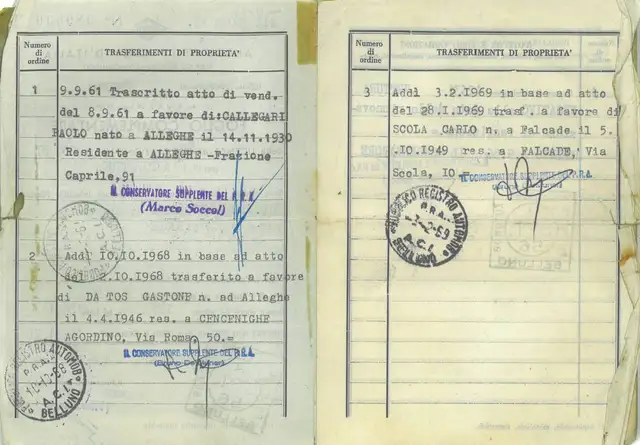 Numero
di
ordine
TRASFERIMENTI DI PROPRIETA'
1
9.9.61 Trascritto atto di vend.
del 8.9.61 a favore di:CALLEGARI
PAOLO nato a ALLEGHE il 14.11.1930
Residente a ALLEGHE -Frazione
Caprile,91
IL CONSERVATORE SUPPLENTE DEL P.R.A.
(Marco Soccol)
2
Addì IO.IO.I968 in base ad atto
del 2.IO.I968 trasferito a favore
di DA TOS GASTONE n. ad Alleghe
il 4.4.I946 res. a CENCENIGHE
AGORDINO, Via Roma 50.=
IL CONSERVATORE SUPPLENTE DEL P.R.A.
PUBBLICO REGISTRO AUTOMOB.
P.R.A.
A.C.I.
BELLUNO
Numero
di
ordine
TRASFERIMENTI DI PROPRIETA'
3
Addì 3.2.I969 in base ad atto
del 28.I.I969 trasf. a favore di
SCOLA CARLO n. a Falcade il 5.
.IO.I949 res. a FALCADE, Via
Scola, IO
IL CONSERVATORE SUPPLENTE DEL P.R.A.
PUBBLICO REGISTRO AUTOMOB.
P.R.A.
-3-2-69
A.C.I.
BELLUNO